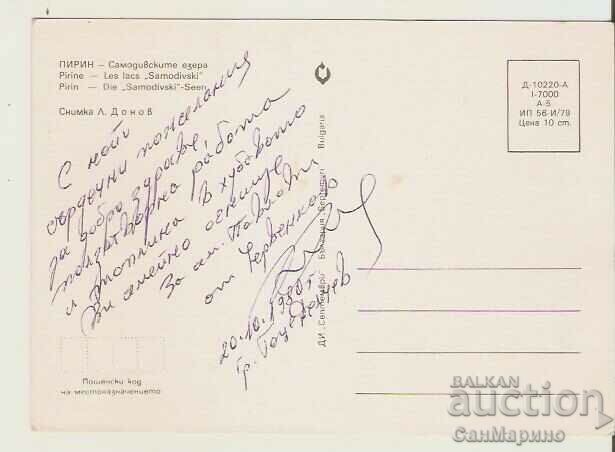 ПИРИН — Самодивските езера
Pirine — Les lacs „Samodivski"
Pirin — Die „Samodivski"-Seen
Снимка Л. Донов
С най
сърдечни пожелания
за добро здраве
ползотворна работа
и топлина в хубавото
Ви семейно огнище
За сем. Павлови
от Червенков
20.10.1980 г.
гр. Гоце Делчев
ДИ „Септември" България Septemvri Bulgaria
Д-10220-А
I-7000
А-5
ИП 56-И/79
Цена 10 ст.
Пощенски код
на местоназначението
BALKAN
auction
СанМарино